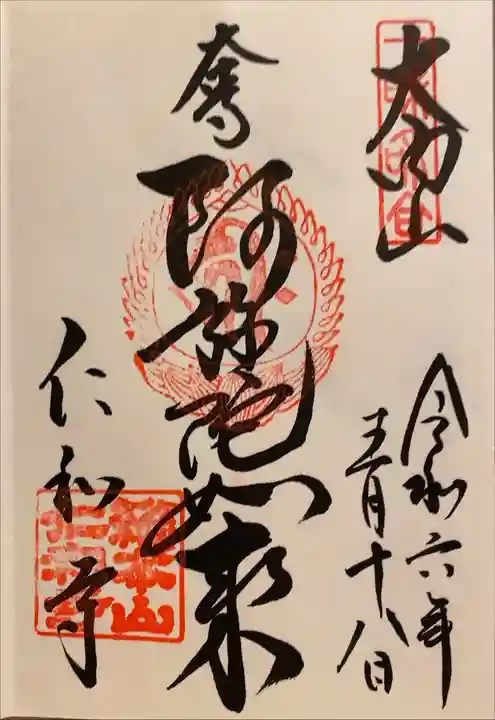 大内山
令和六年
五月十八日
奉
阿弥陀如来
仁和寺
総本山
仁和寺